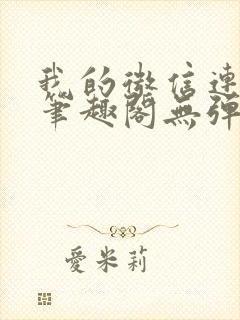 我的微信連
筆趣閣無彈
愛米莉